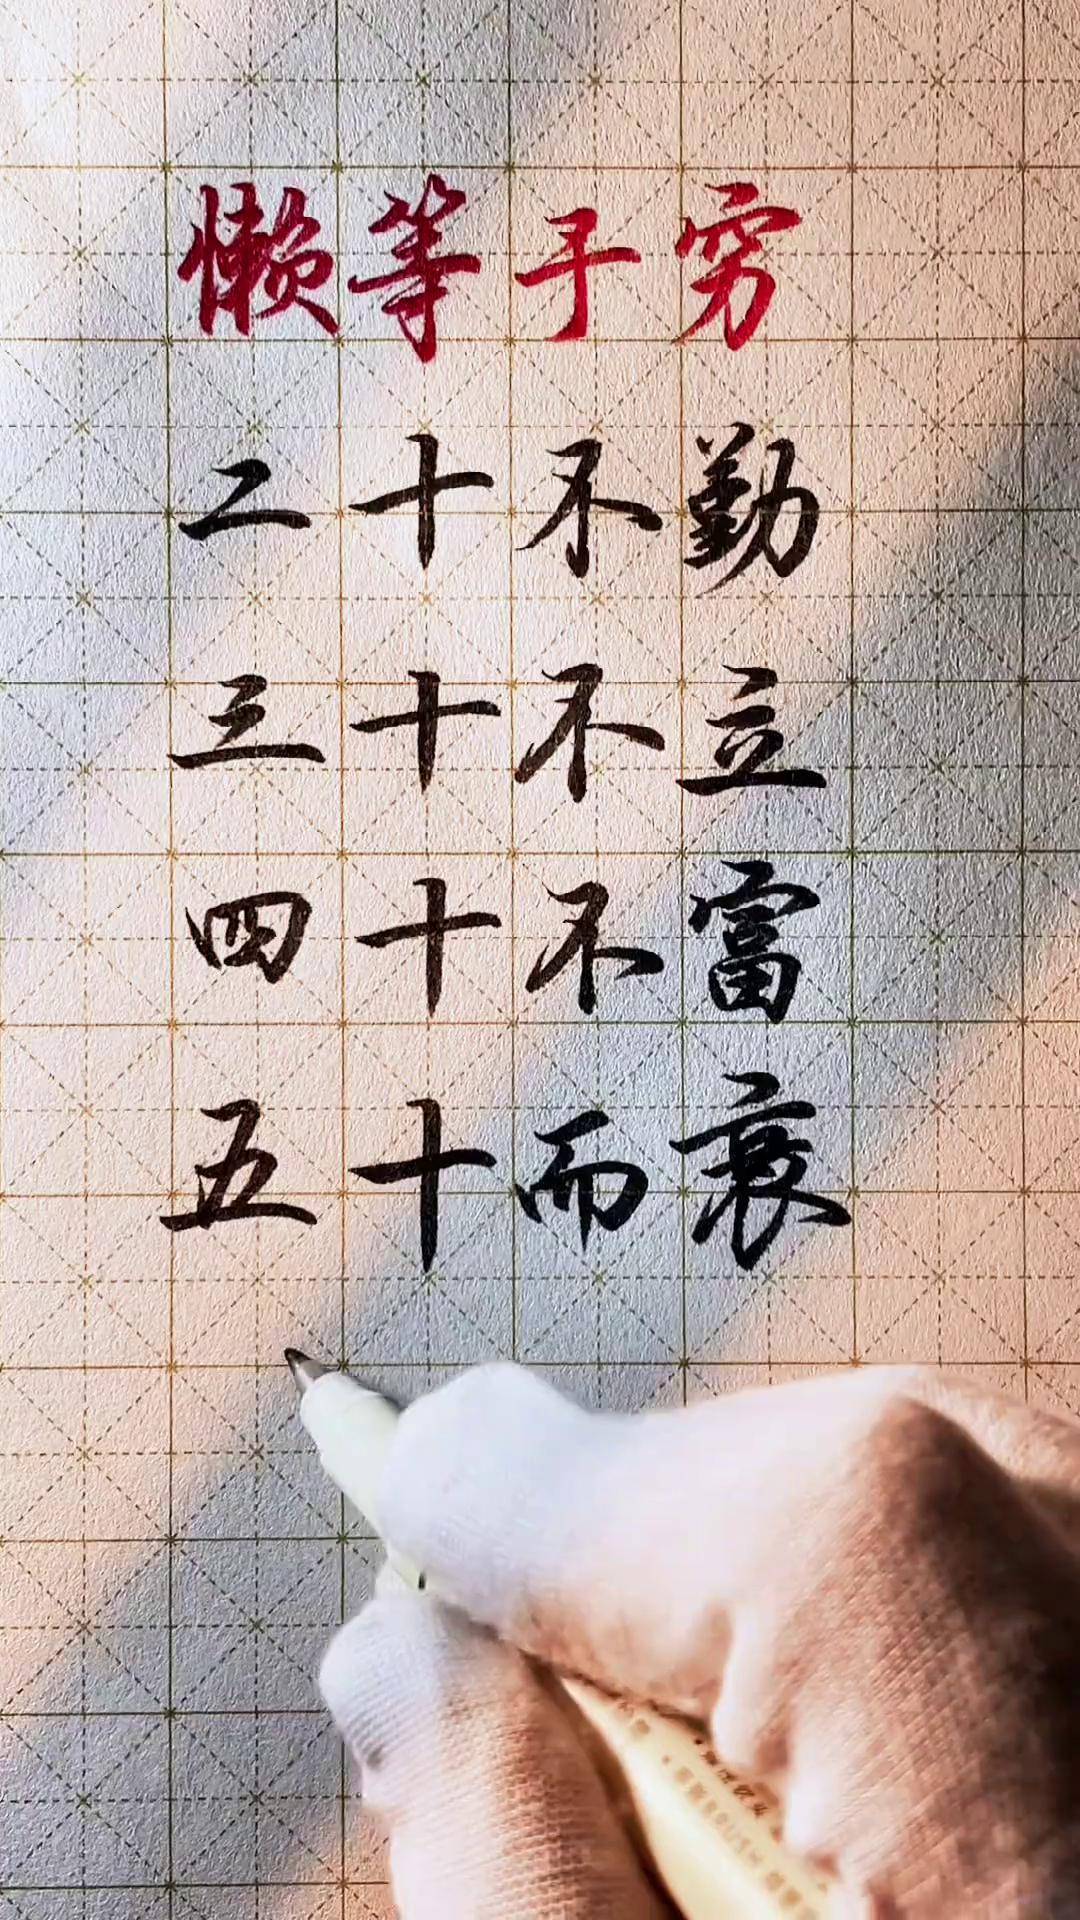 懒等于穷
二十不勤
三十不立
四十不富
五十而衰